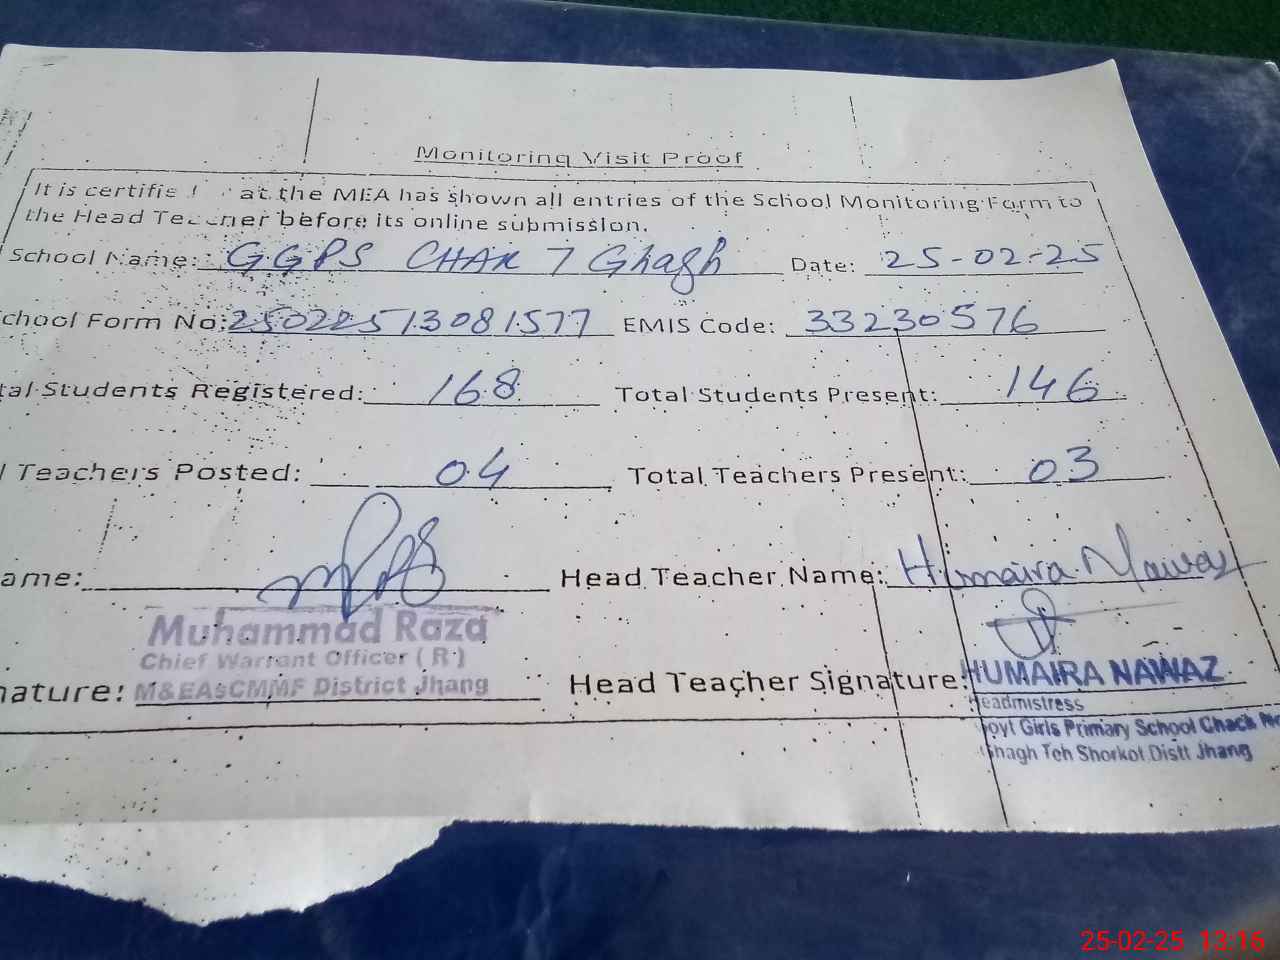 Monitoring Visit Proof
It is certifie at the MEA has shown all entries of the School Monitoring Form to
the Head Teacher before its online submission.
School Name: GGPS CHAK 7 Ghagh Date: 25-02-25
chool Form No: 25022513081577 EMIS Code: 33230576
tal Students Registered: 168 Total Students Present: 146
l Teachers Posted: 04 Total Teachers Present: 03
ame: Head Teacher Name: Humaira Nawaz
Muhammad Raza
Chief Warrant Officer ( R )
nature: M&EAsCMMF District Jhang Head Teacher Signature: HUMAIRA NAWAZ
eadmistress
ovt Girls Primary School Chack No
Ghagh Teh Shorkot Distt Jhang
25-02-25 13:16